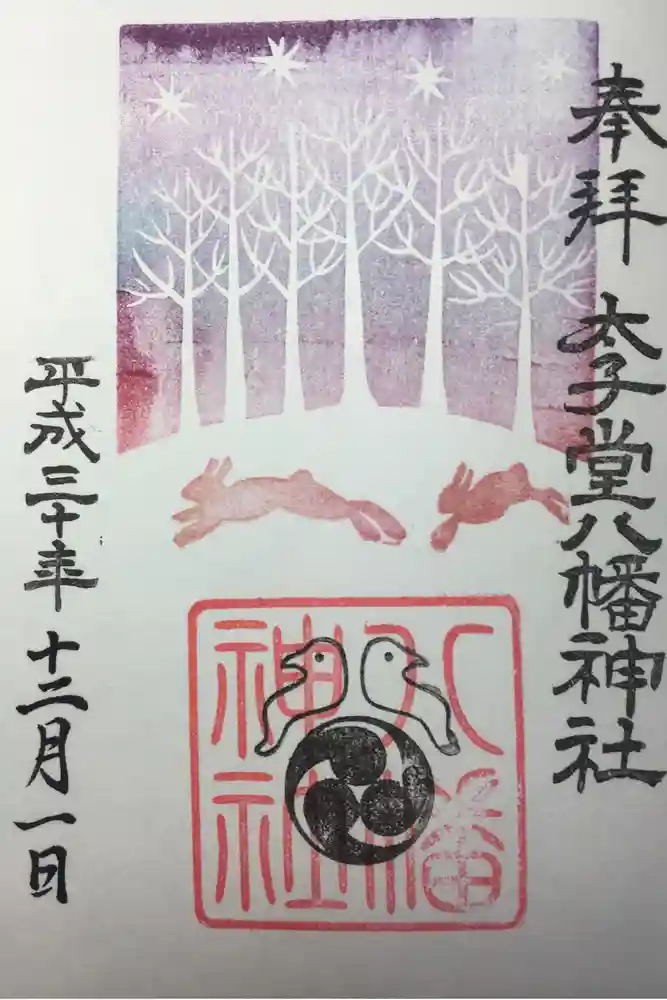 奉拝
太子堂八幡神社
八幡
神社
平成三十年 十二月一日